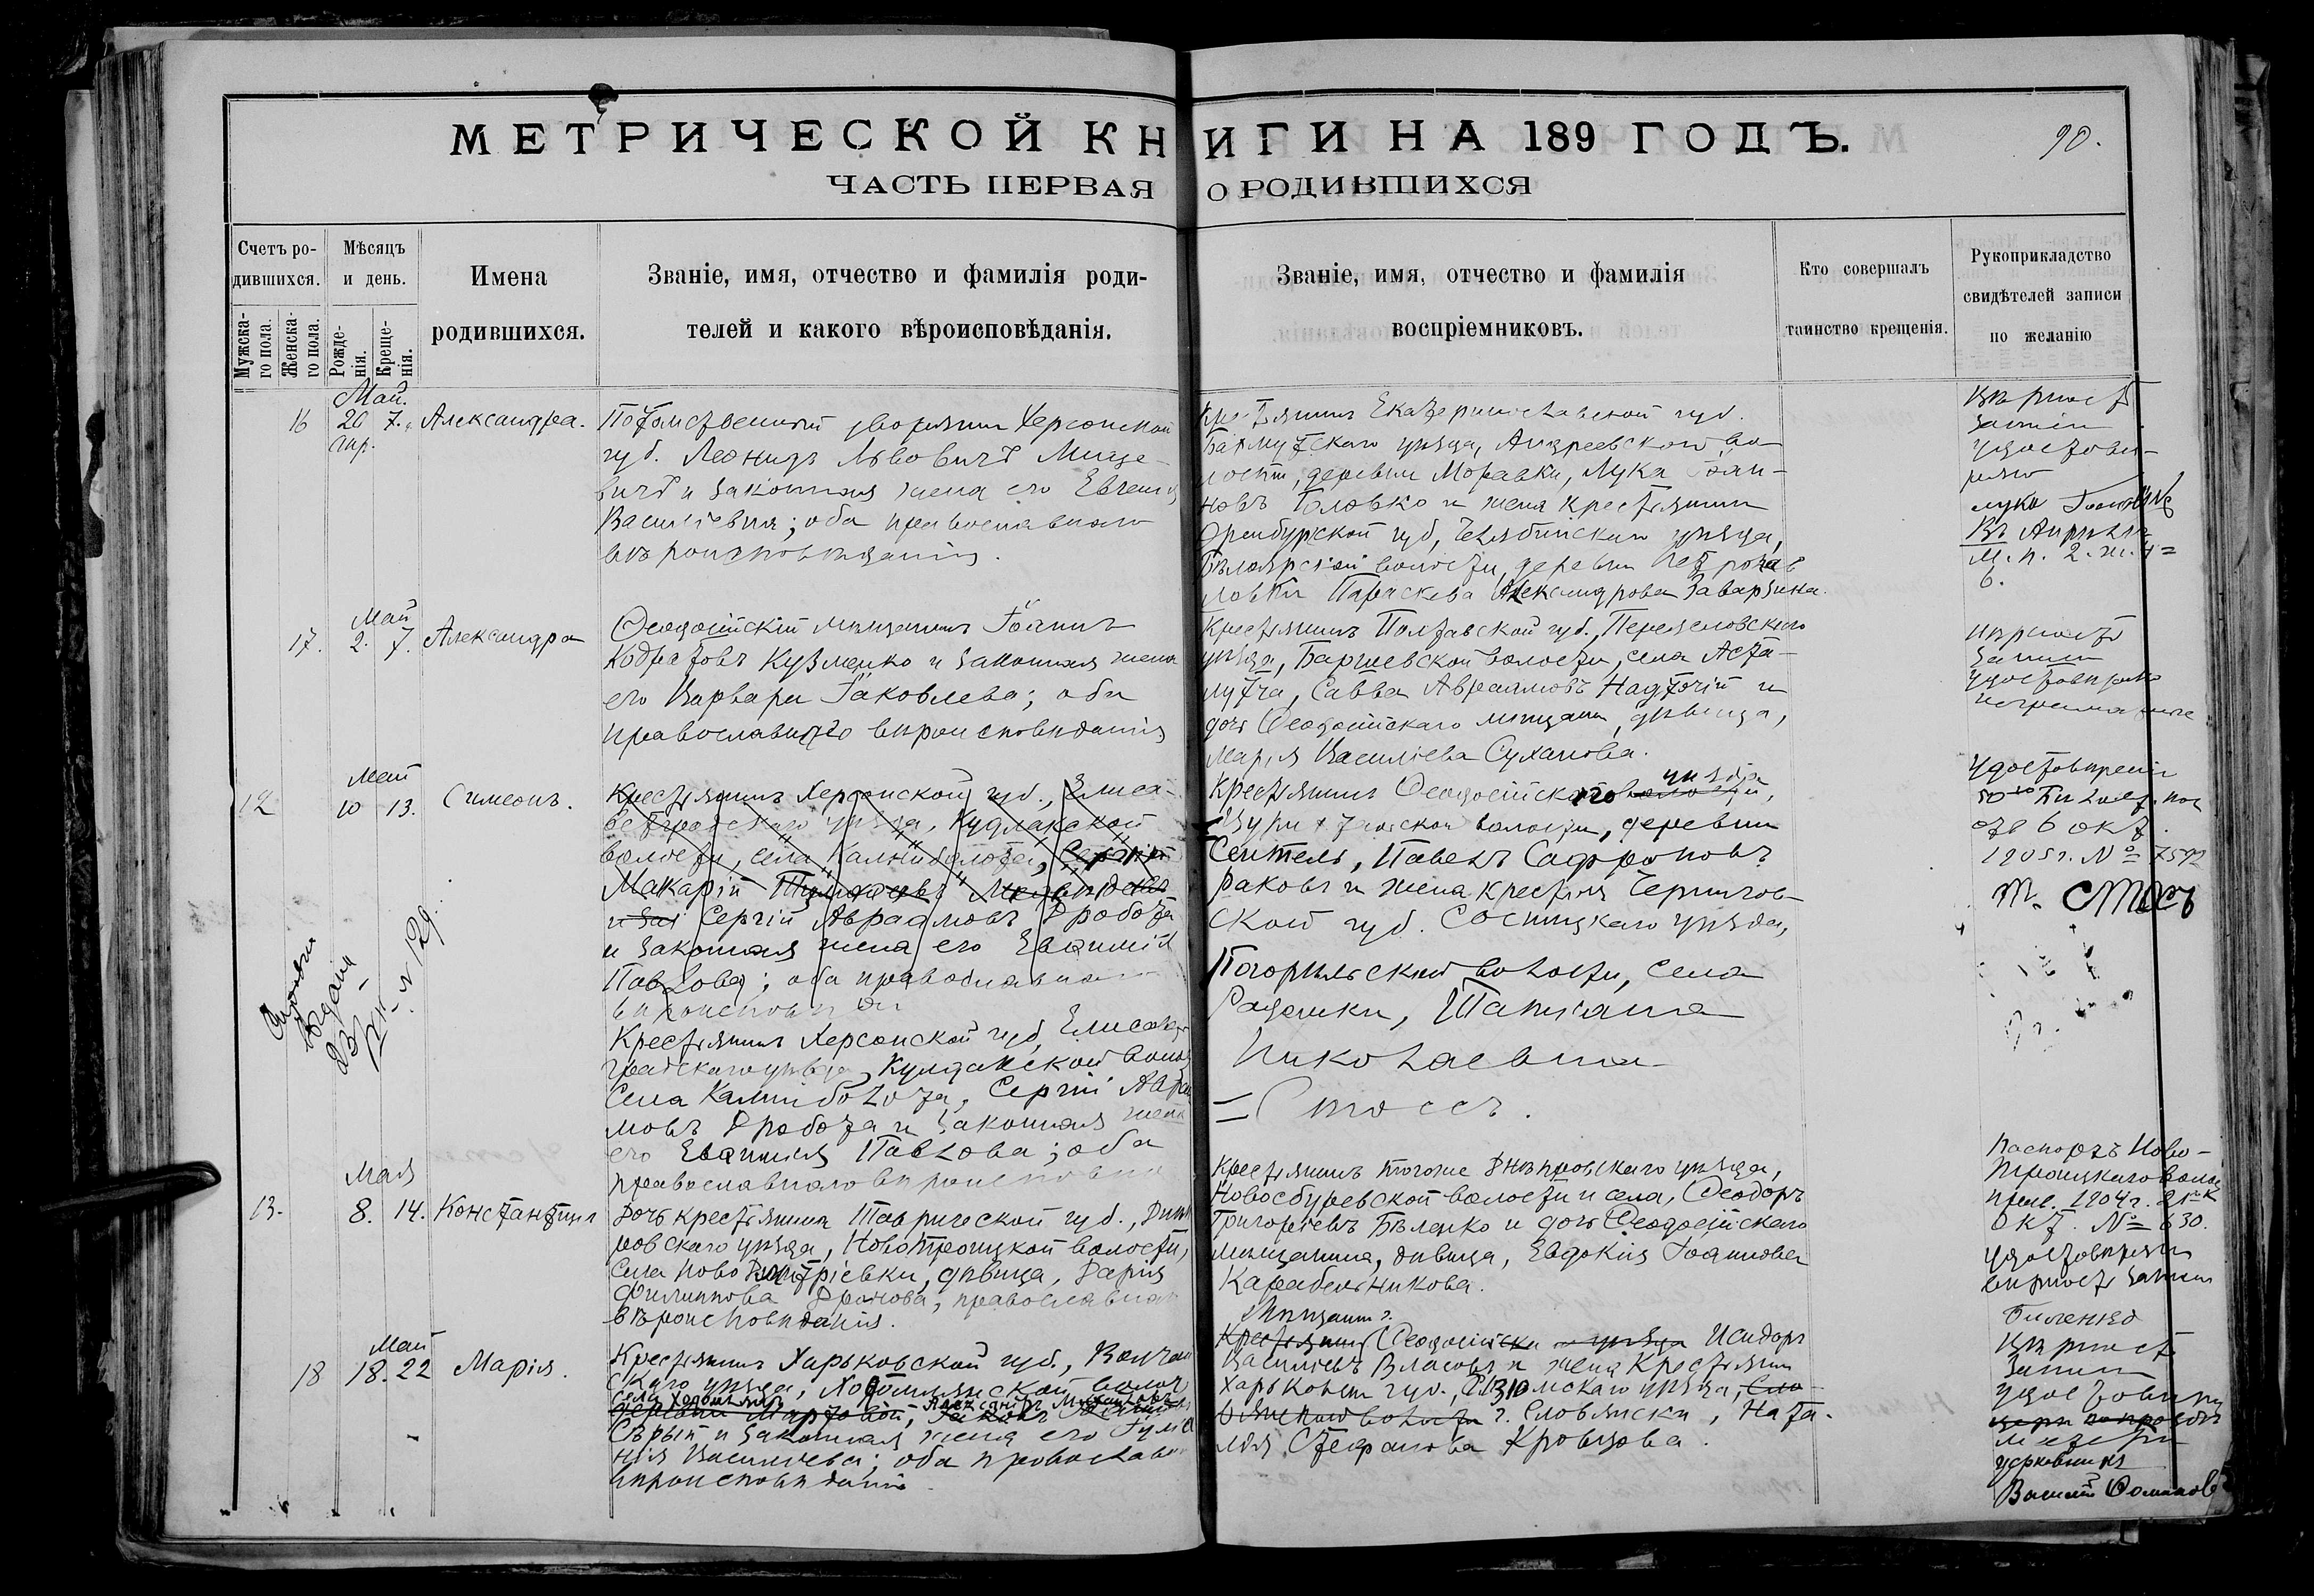 МЕТРИЧЕСКОЙ КНИГИ НА 189 ГОДЪ.
90.
ЧАСТЬ ПЕРВАЯ О РОДИВШИХСЯ
Счетъ ро-
дившихся.
Мужска-
го пола.
Женска-
го пола.
Мѣсяцъ
и день.
Рожде-
нія.
Креще-
нія.
Имена
родившихся.
Званіе, имя, отчество и фамилія роди-
телей и какого вѣроисповѣданія.
Званіе, имя, отчество и фамилія
воспріемниковъ.
Кто совершалъ
таинство крещенія.
Рукоприкладство
свидѣтелей записи
по желанію
Май.
16 26 7. Александра.
апр.
Потомственный дворянинъ Херсонской
губ. Леонидъ Львовичъ Мице-
вичъ и законная жена его Евгенія
Василіевна; оба православнаго
вѣроисповѣданія.
Крестьянинъ Екатеринославской губ.
Бахмутскаго уѣзда, Андреевской во-
лости, деревни Моравки, Лука Іоан-
новъ Головко и жена крестьянина
Оренбурской губ, Челябинскаго уѣзда,
Бѣлоярской волости, деревни Петропав
ловки Параскева Александрова Заварзина.
Вѣрность
записи
удостовѣ-
ряю
Лука
Въ Апрѣлѣ
м.п. 2. ж. 4=
6.
Май
17. 2. 7. Александра
Ѳеодосійскій мѣщанинъ Іоаннъ
Кодратовъ Кузменко и законная жена
его Варвара Іаковлева; оба
православнаго вѣроисповѣданія
Крестьянинъ Полтавской губ., Переяславскаго
уѣзда, Баришевской волости, села Аста-
, Савва Авраамовъ Надточій и
дочь Ѳеодосійскаго мѣщанина, дѣвица,
Марія Василіева Суханова.
Вѣрность
записи
удостовѣряю
неграмотные
Май
12 10 13. Симеонъ.
Крестьянинъ Херсонской губ., Елиса-
ветградскаго уѣзда,
волости, села Калніболота, Сергій
Макарій
и за Сергій Авраамовъ Дробота
и законная жена его Евѳимія
Павлова; оба православнаго
вѣроисповѣдан
Крестьянинъ Херсонской губ, Елисавет
градскаго уѣзда, волос
Села Калніболота, Сергій Авраа
мовъ Дробота и законная жена
его Евѳимія Павлова; оба
православнаго вѣроисповѣд
выдана
23/ № 129.
уѣзда
Крестьянинъ Ѳеодосійскаго волости,
волости, деревни
Сеитель, Павелъ Сафроновъ
Раковъ и жена крестьян Чернигов-
ской губ. Сосницкаго уѣзда,
Погорѣльской волости, села
Радички, Татіана
Николаевна
= Стоссъ.
Удостовѣреніе
отъ 6 окт.
1905 г. № 7592
Т. Стоссъ
Мая
13. 8. 14. Константинъ
Дочь крестьянина Таврической губ., Днѣп
ровскаго уѣзда, Новотроицкой волости,
села Ново Дмитріевки, дѣвица, Дарія
Филиппова Дронова, православнаго
вѣроисповѣданія.
Крестьянинъ того же Днѣпровскаго уѣзда,
Новосбурьевской волости и села, Ѳеодоръ
Григоріевъ Бѣленко и дочь Ѳеодосійскаго
мѣщанина, дѣвица, Евдокія Іоаннова
Карабельникова.
Паспортъ Ново-
Троицкаго волос
прав. 1904 г. 21
окт. № 630.
Удостовѣряю
вѣрность записи
Биленко
Май
18 18. 22 Марія.
Крестьянинъ Харьковской губ., Волчан
скаго уѣзда, Хотомлянской волос
деревни Мартовой, Іаковъ
Сѣрый и законная жена его Іуліа
нія Василіева; оба православн
вѣроисповѣданія
Мѣщанинъ г.
Крестьянинъ Ѳеодосійски уѣзда Исидоръ
Василіевъ Власовъ и жена крестьянина
Харьковск губ., Изюмскаго уѣзда, Сло-
вянской волости г. Словянска, Ната-
лія Стефанова Кровцова.
Вѣрность
записи
удостовѣряю
церковникъ
Василій Романов